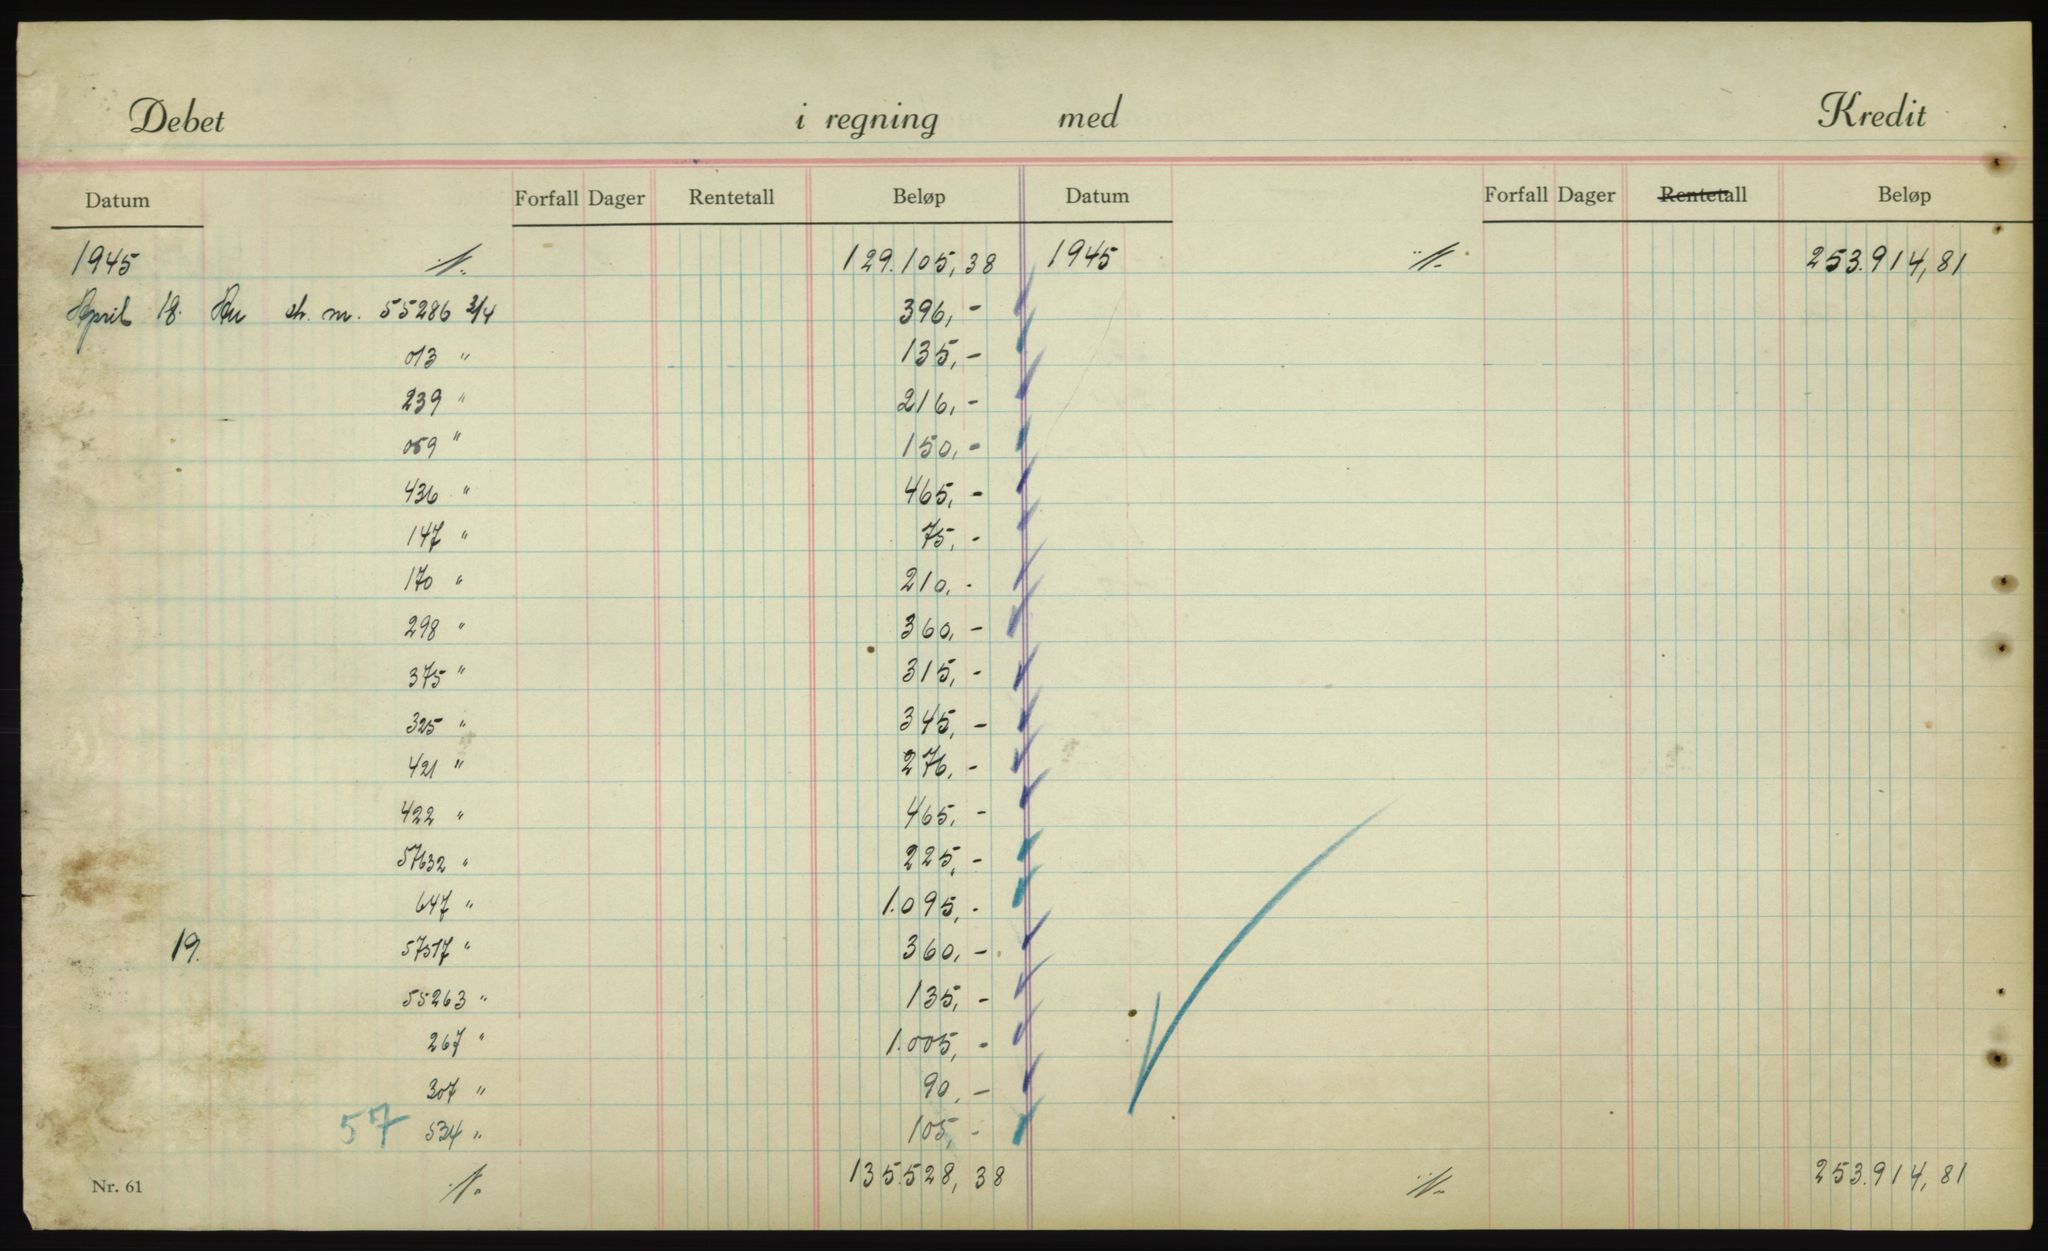 Debet i regning med Kredit
Datum Forfall Dager Rentetall Beløp Datum Forfall Dager Rentetall Beløp
1945 129.105,38 1945 253.914,81
April 18. nr. 55286 3/4 396,-
013 " 135,-
239 " 216,-
059 " 150,-
436 " 465,-
147 " 75,-
170 " 210,-
298 " 360,-
375 " 315,-
325 " 345,-
421 " 276,-
422 " 465,-
57632 " 225,-
647 " 1.095,-
19. 57517 " 360,-
55263 " 135,-
267 " 1.005,-
307 " 90,-
57 534 " 105,-
Nr. 61 135.528,38 253.914,81